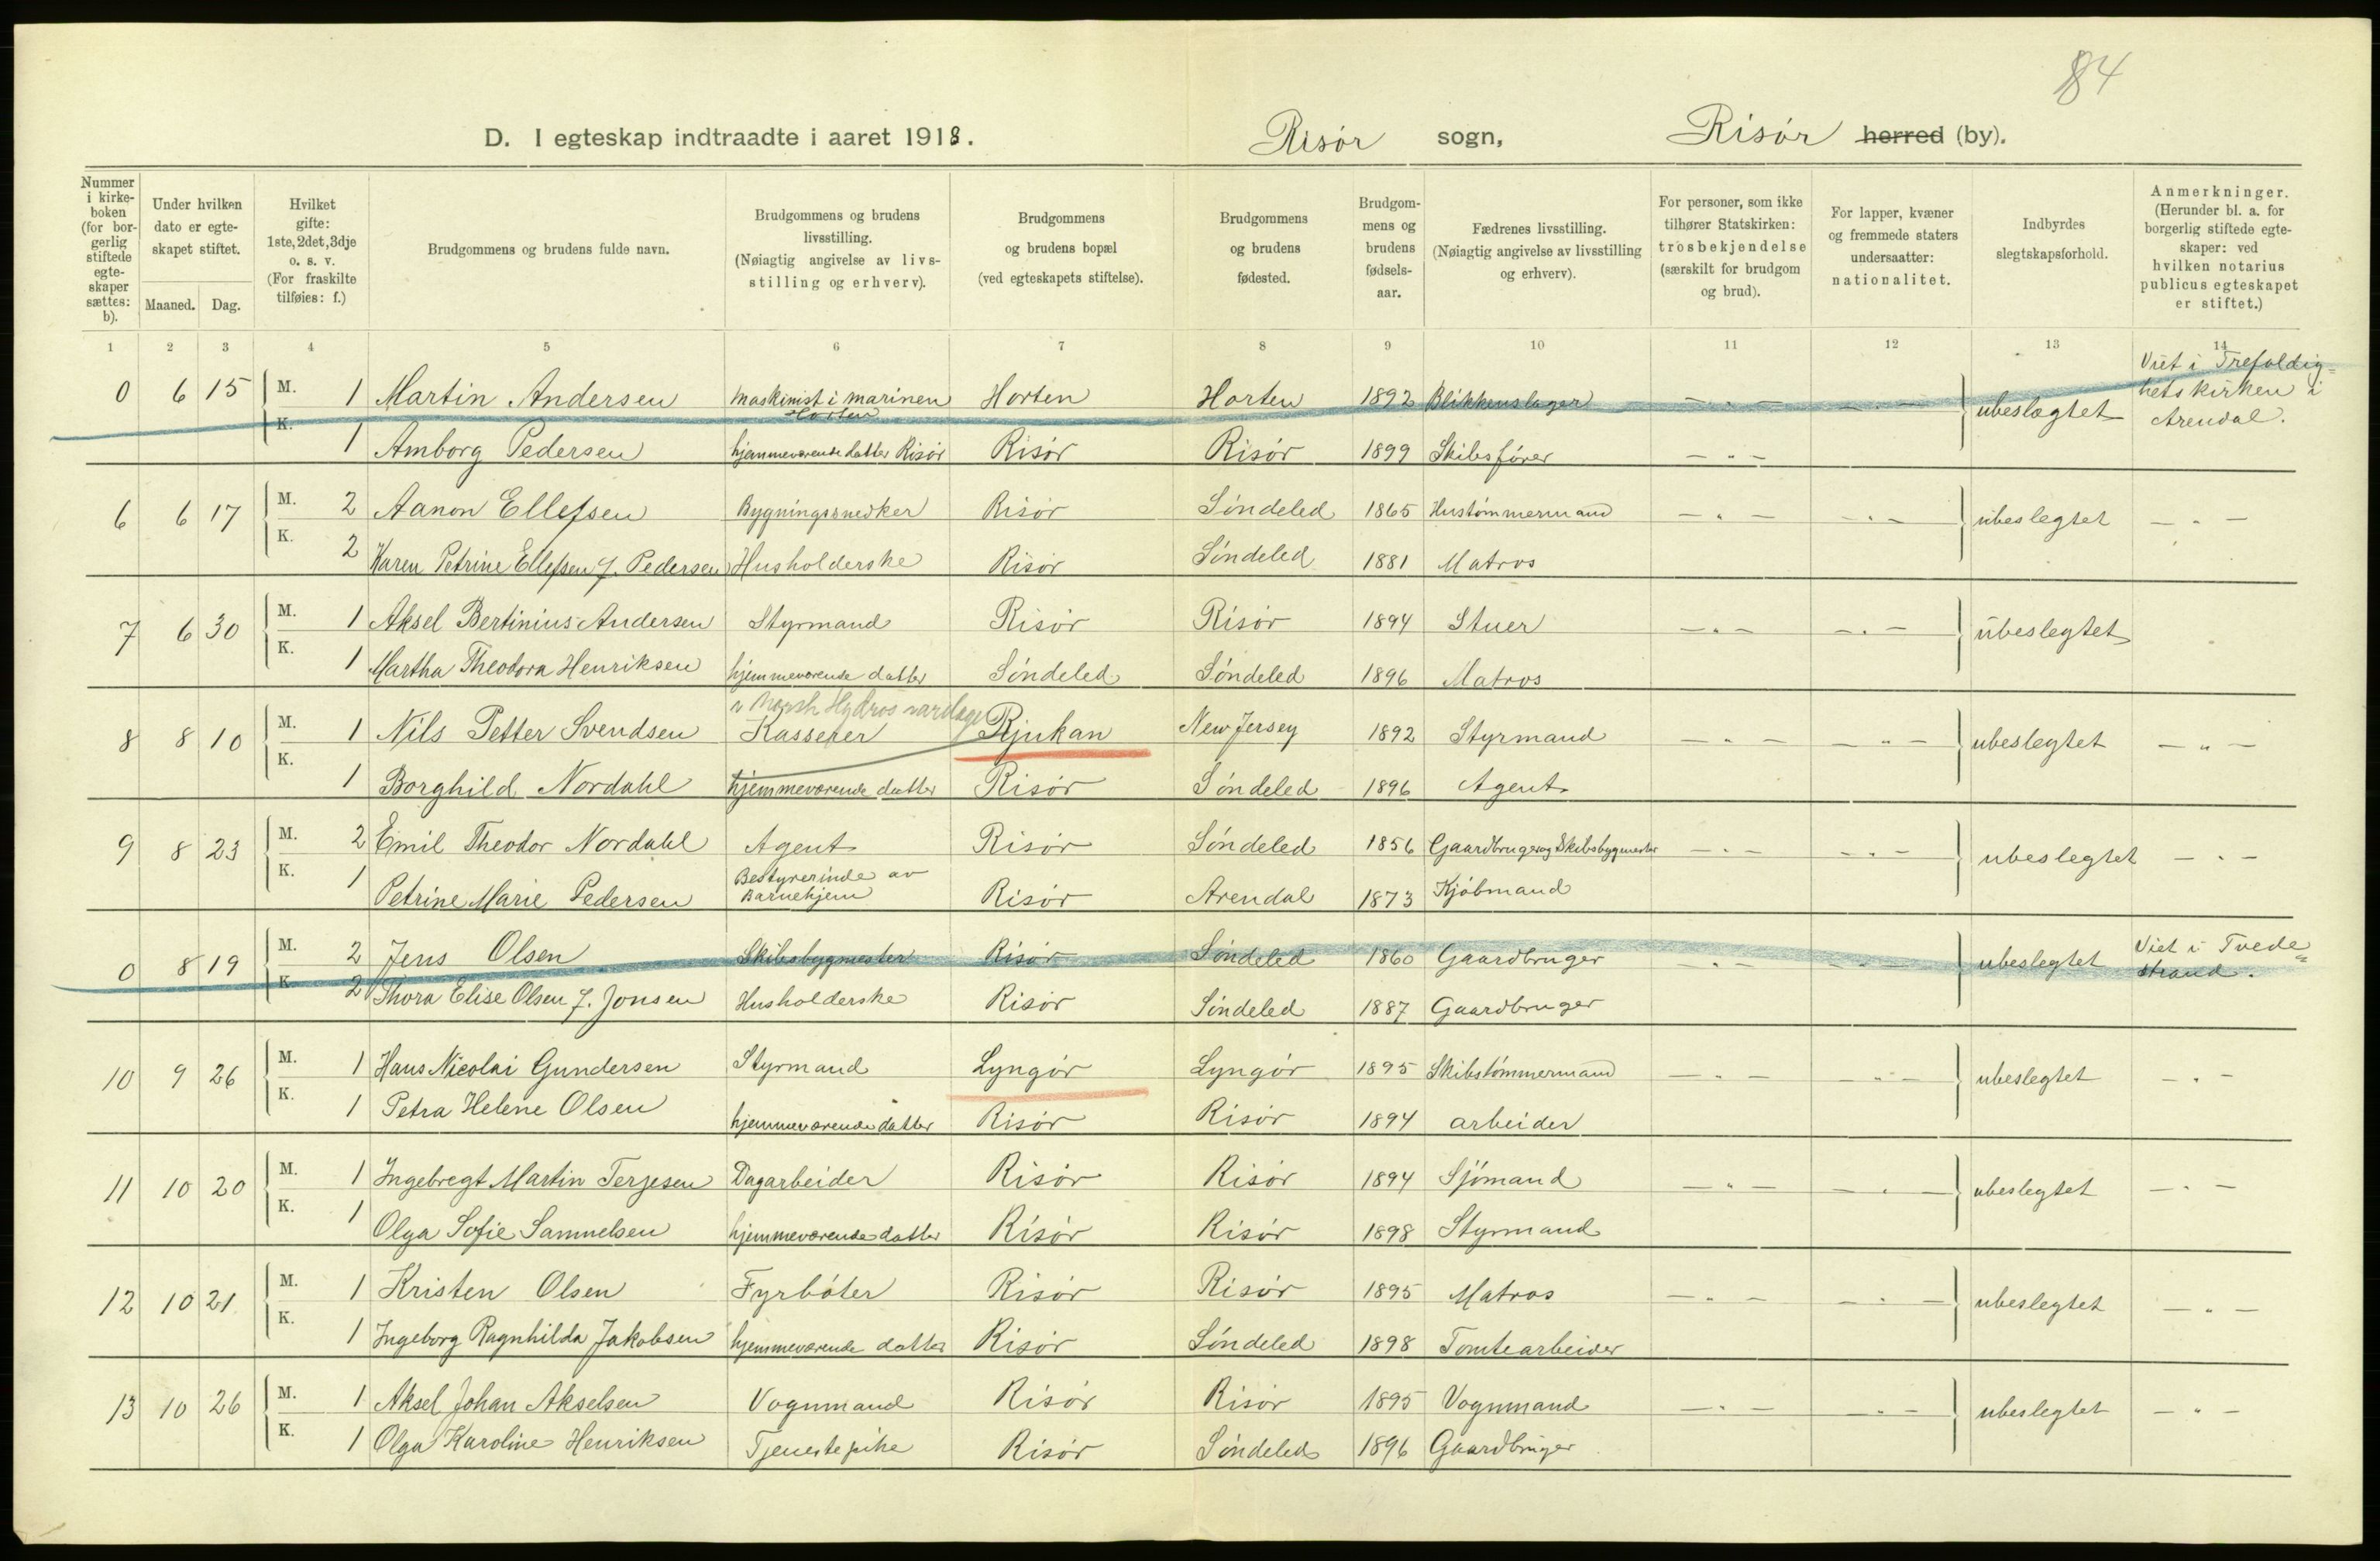 84
D. I egteskap indtraadte i aaret 1918. Risør sogn, Risør herred (by).
Nummer i kirkeboken (for borgerlig stiftede egteskaper sættes: b).
Under hvilken dato er egteskapet stiftet.
Maaned. Dag.
Hvilket gifte: 1ste, 2det, 3dje o. s. v. (For fraskilte tilføies: f.)
Brudgommens og brudens fulde navn.
Brudgommens og brudens livsstilling. (Nøiagtig angivelse av livsstilling og erhverv).
Brudgommens og brudens bopæl (ved egteskapets stiftelse).
Brudgommens og brudens fødested.
Brudgommens og brudens fødselsaar.
Fædrenes livsstilling. (Nøiagtig angivelse av livsstilling og erhverv).
For personer, som ikke tilhører Statskirken: trosbekjendelse (særskilt for brudgom og brud).
For lapper, kvæner og fremmede staters undersaatter: nationalitet.
Indbyrdes slegtskapsforhold.
Anmerkninger. (Herunder bl. a. for borgerlig stiftede egteskaper: ved hvilken notarius publicus egteskapet er stiftet.)
1 2 3 4 5 6 7 8 9 10 11 12 13 14
0 6 15 M. 1 Martin Andersen maskinist i marinen Horten Horten Horten 1892 Blikkenslager — " — — " — ubeslægtet Viet i Trefoldig=hetskirken i Arendal.
K. 1 Amborg Pedersen hjemmeværende datter Risør Risør Risør 1899 Skibsfører — " —
6 6 17 M. 2 Aanon Ellefsen Bygningssnedker Risør Søndeled 1865 Hustømmermand — " — — " — ubeslegtet — " —
K. 2 Karen Petrine Ellefsen f. Pedersen Husholderske Risør Søndeled 1881 Matros
7 6 30 M. 1 Aksel Bertinius Andersen Styrmand Risør Risør 1894 Stuer — " — — " — ubeslegtet
K. 1 Martha Theodora Henriksen hjemmeværende datter Søndeled Søndeled 1896 Matros
8 8 10 M. 1 Nils Petter Svendsen Kasserer i Norsk Hydros Rjukan New Jersey 1892 Styrmand — " — — " — ubeslegtet — " —
K. 1 Borghild Nordahl hjemmeværende datter Risør Søndeled 1896 Agent
9 8 23 M. 2 Emil Theodor Nordahl Agent Risør Søndeled 1856 Gaardbruger og Skibsbygmester — " — — " — ubeslegtet — " —
K. 1 Petrine Marie Pedersen Bestyrerinde av Barnehjem Risør Arendal 1873 Kjøbmand
0 8 19 M. 2 Jens Olsen Skibsbygmester Risør Søndeled 1860 Gaardbruger — " — — " — ubeslegtet Viet i Tvede=strand.
K. 2 Thora Elise Olsen f. Jonsen Husholderske Risør Søndeled 1887 Gaardbruger
10 9 26 M. 1 Hans Nicolai Gundersen Styrmand Lyngør Lyngør 1895 Skibstømmermand — " — — " — ubeslegtet — " —
K. 1 Petra Helene Olsen hjemmeværende datter Risør Risør 1894 arbeider
11 10 20 M. 1 Ingebregt Martin Terjesen Dagarbeider Risør Risør 1894 Sjømand — " — — " — ubeslegtet — " —
K. 1 Olga Sofie Samuelsen hjemmeværende datter Risør Risør 1898 Styrmand
12 10 21 M. 1 Kristen Olsen Fyrbøter Risør Risør 1895 Matros — " — — " — ubeslegtet — " —
K. 1 Ingeborg Ragnhilda Jakobsen hjemmeværende datter Risør Søndeled 1898 Tomtearbeider
13 10 26 M. 1 Aksel Johan Akselsen Vognmand Risør Risør 1895 Vognmand — " — — " — ubeslegtet — " —
K. 1 Olga Karoline Henriksen Tjenestepike Risør Søndeled 1896 Gaardbruger